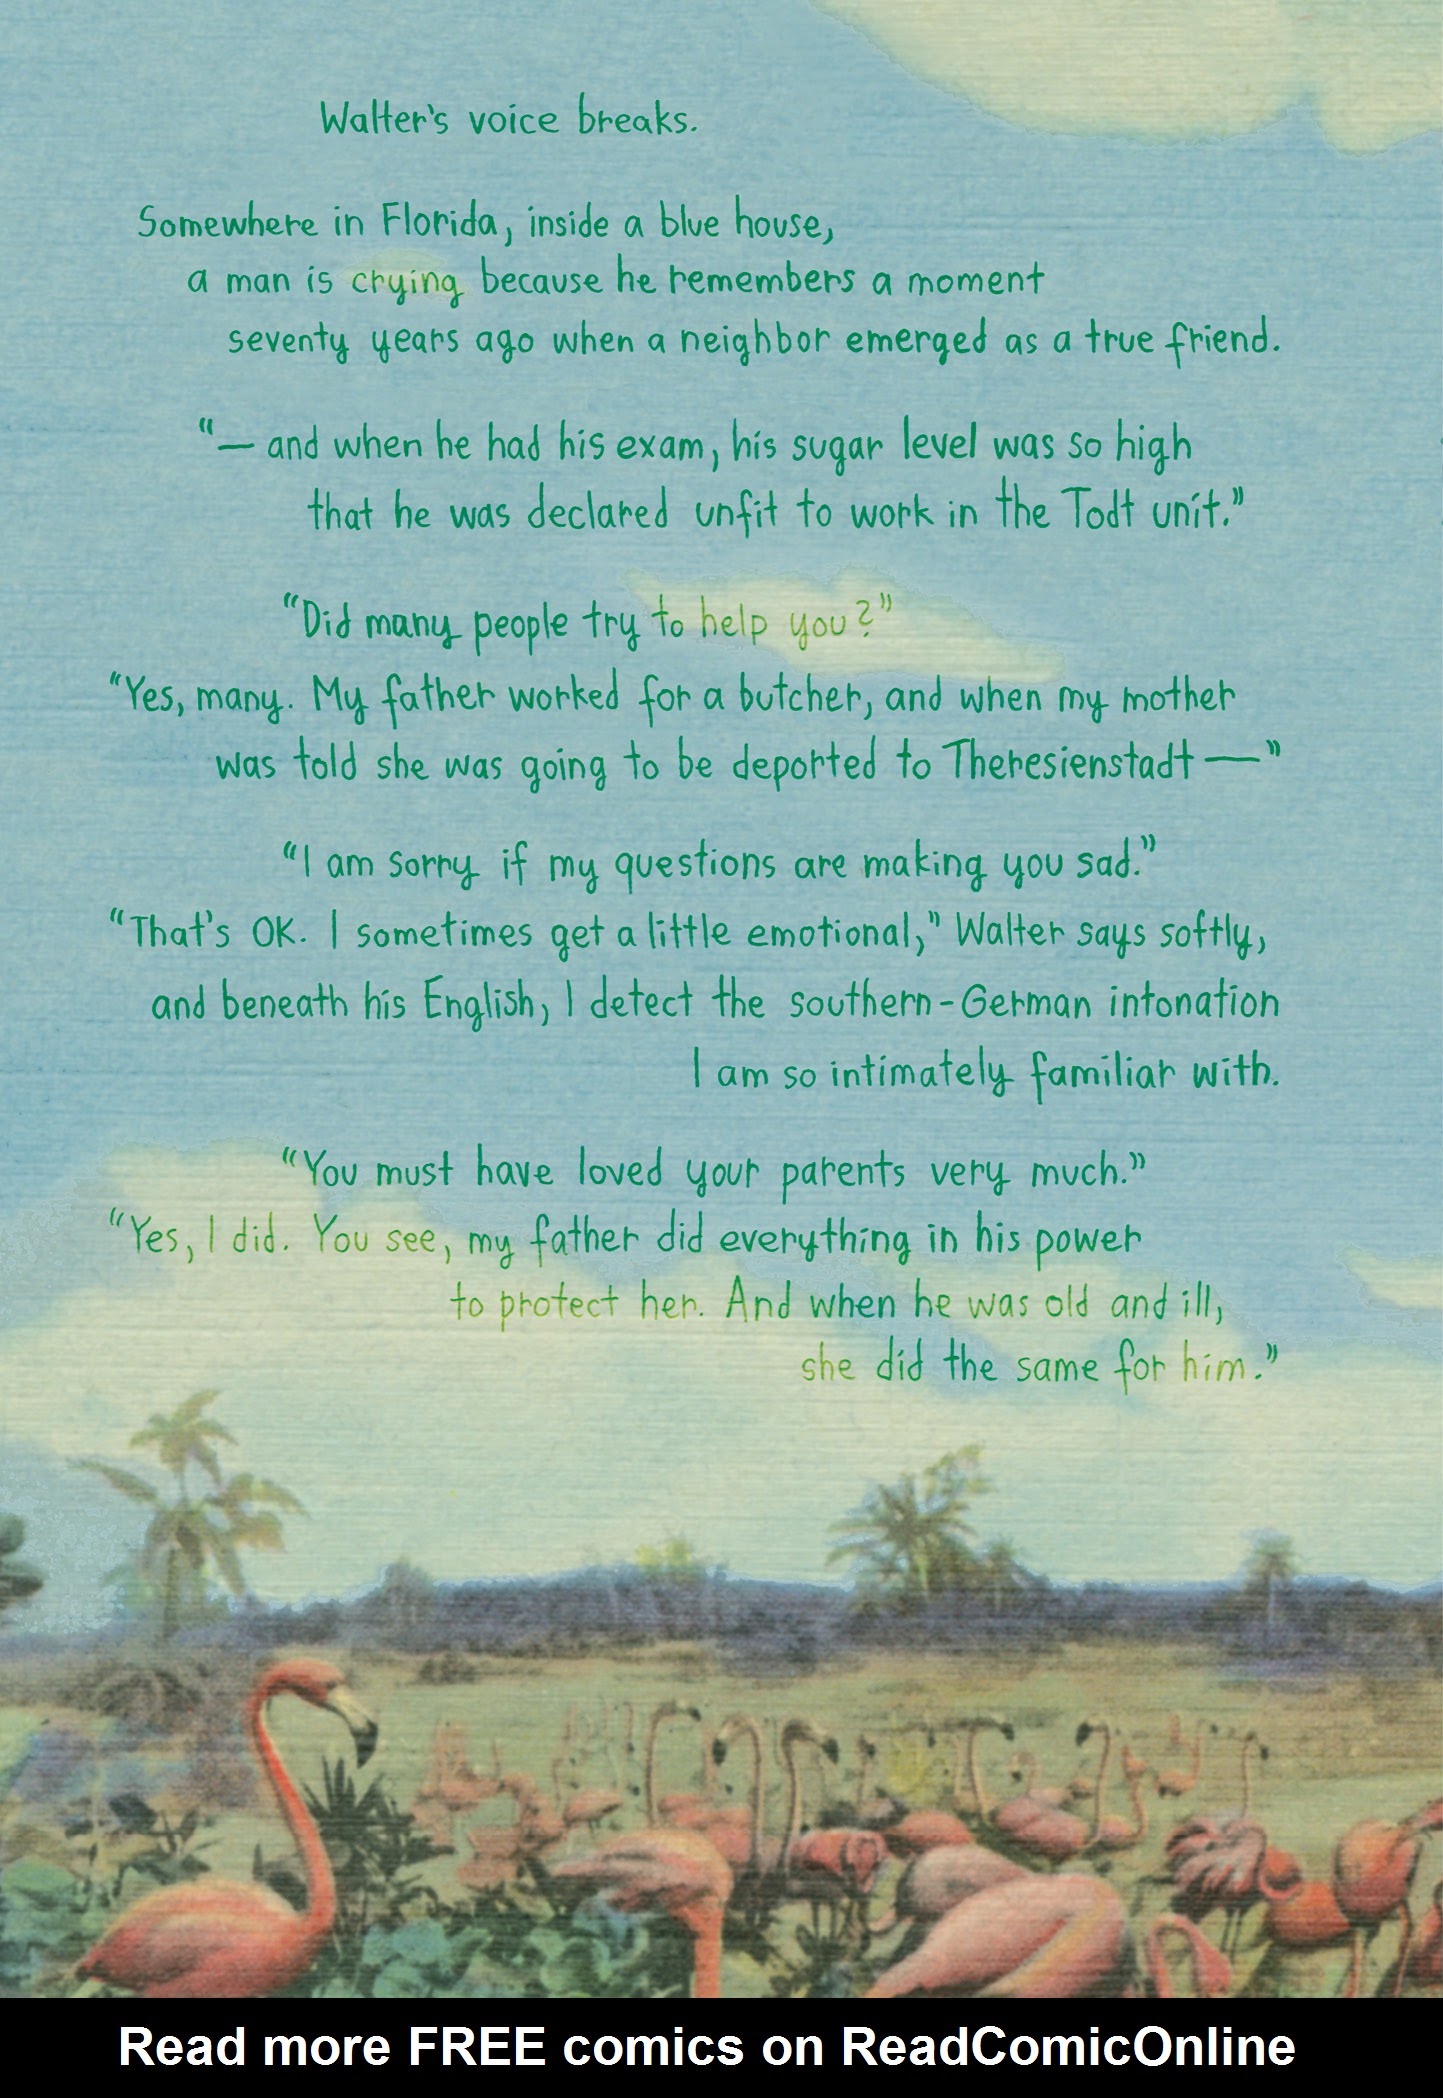 Walter's voice breaks.
Somewhere in Florida, inside a blue house,
a man is crying because he remembers a moment
seventy years ago when a neighbor emerged as a true friend.
“— and when he had his exam, his sugar level was so high
that he was declared unfit to work in the Todt unit.”
“Did many people try to help you?”
“Yes, many. My father worked for a butcher, and when my mother
was told she was going to be deported to Theresienstadt —”
“I am sorry if my questions are making you sad.”
“That's OK. I sometimes get a little emotional,” Walter says softly,
and beneath his English, I detect the southern-German intonation
I am so intimately familiar with.
“You must have loved your parents very much.”
“Yes, I did. You see, my father did everything in his power
to protect her. And when he was old and ill,
she did the same for him.”
Read more FREE comics on ReadComicOnline